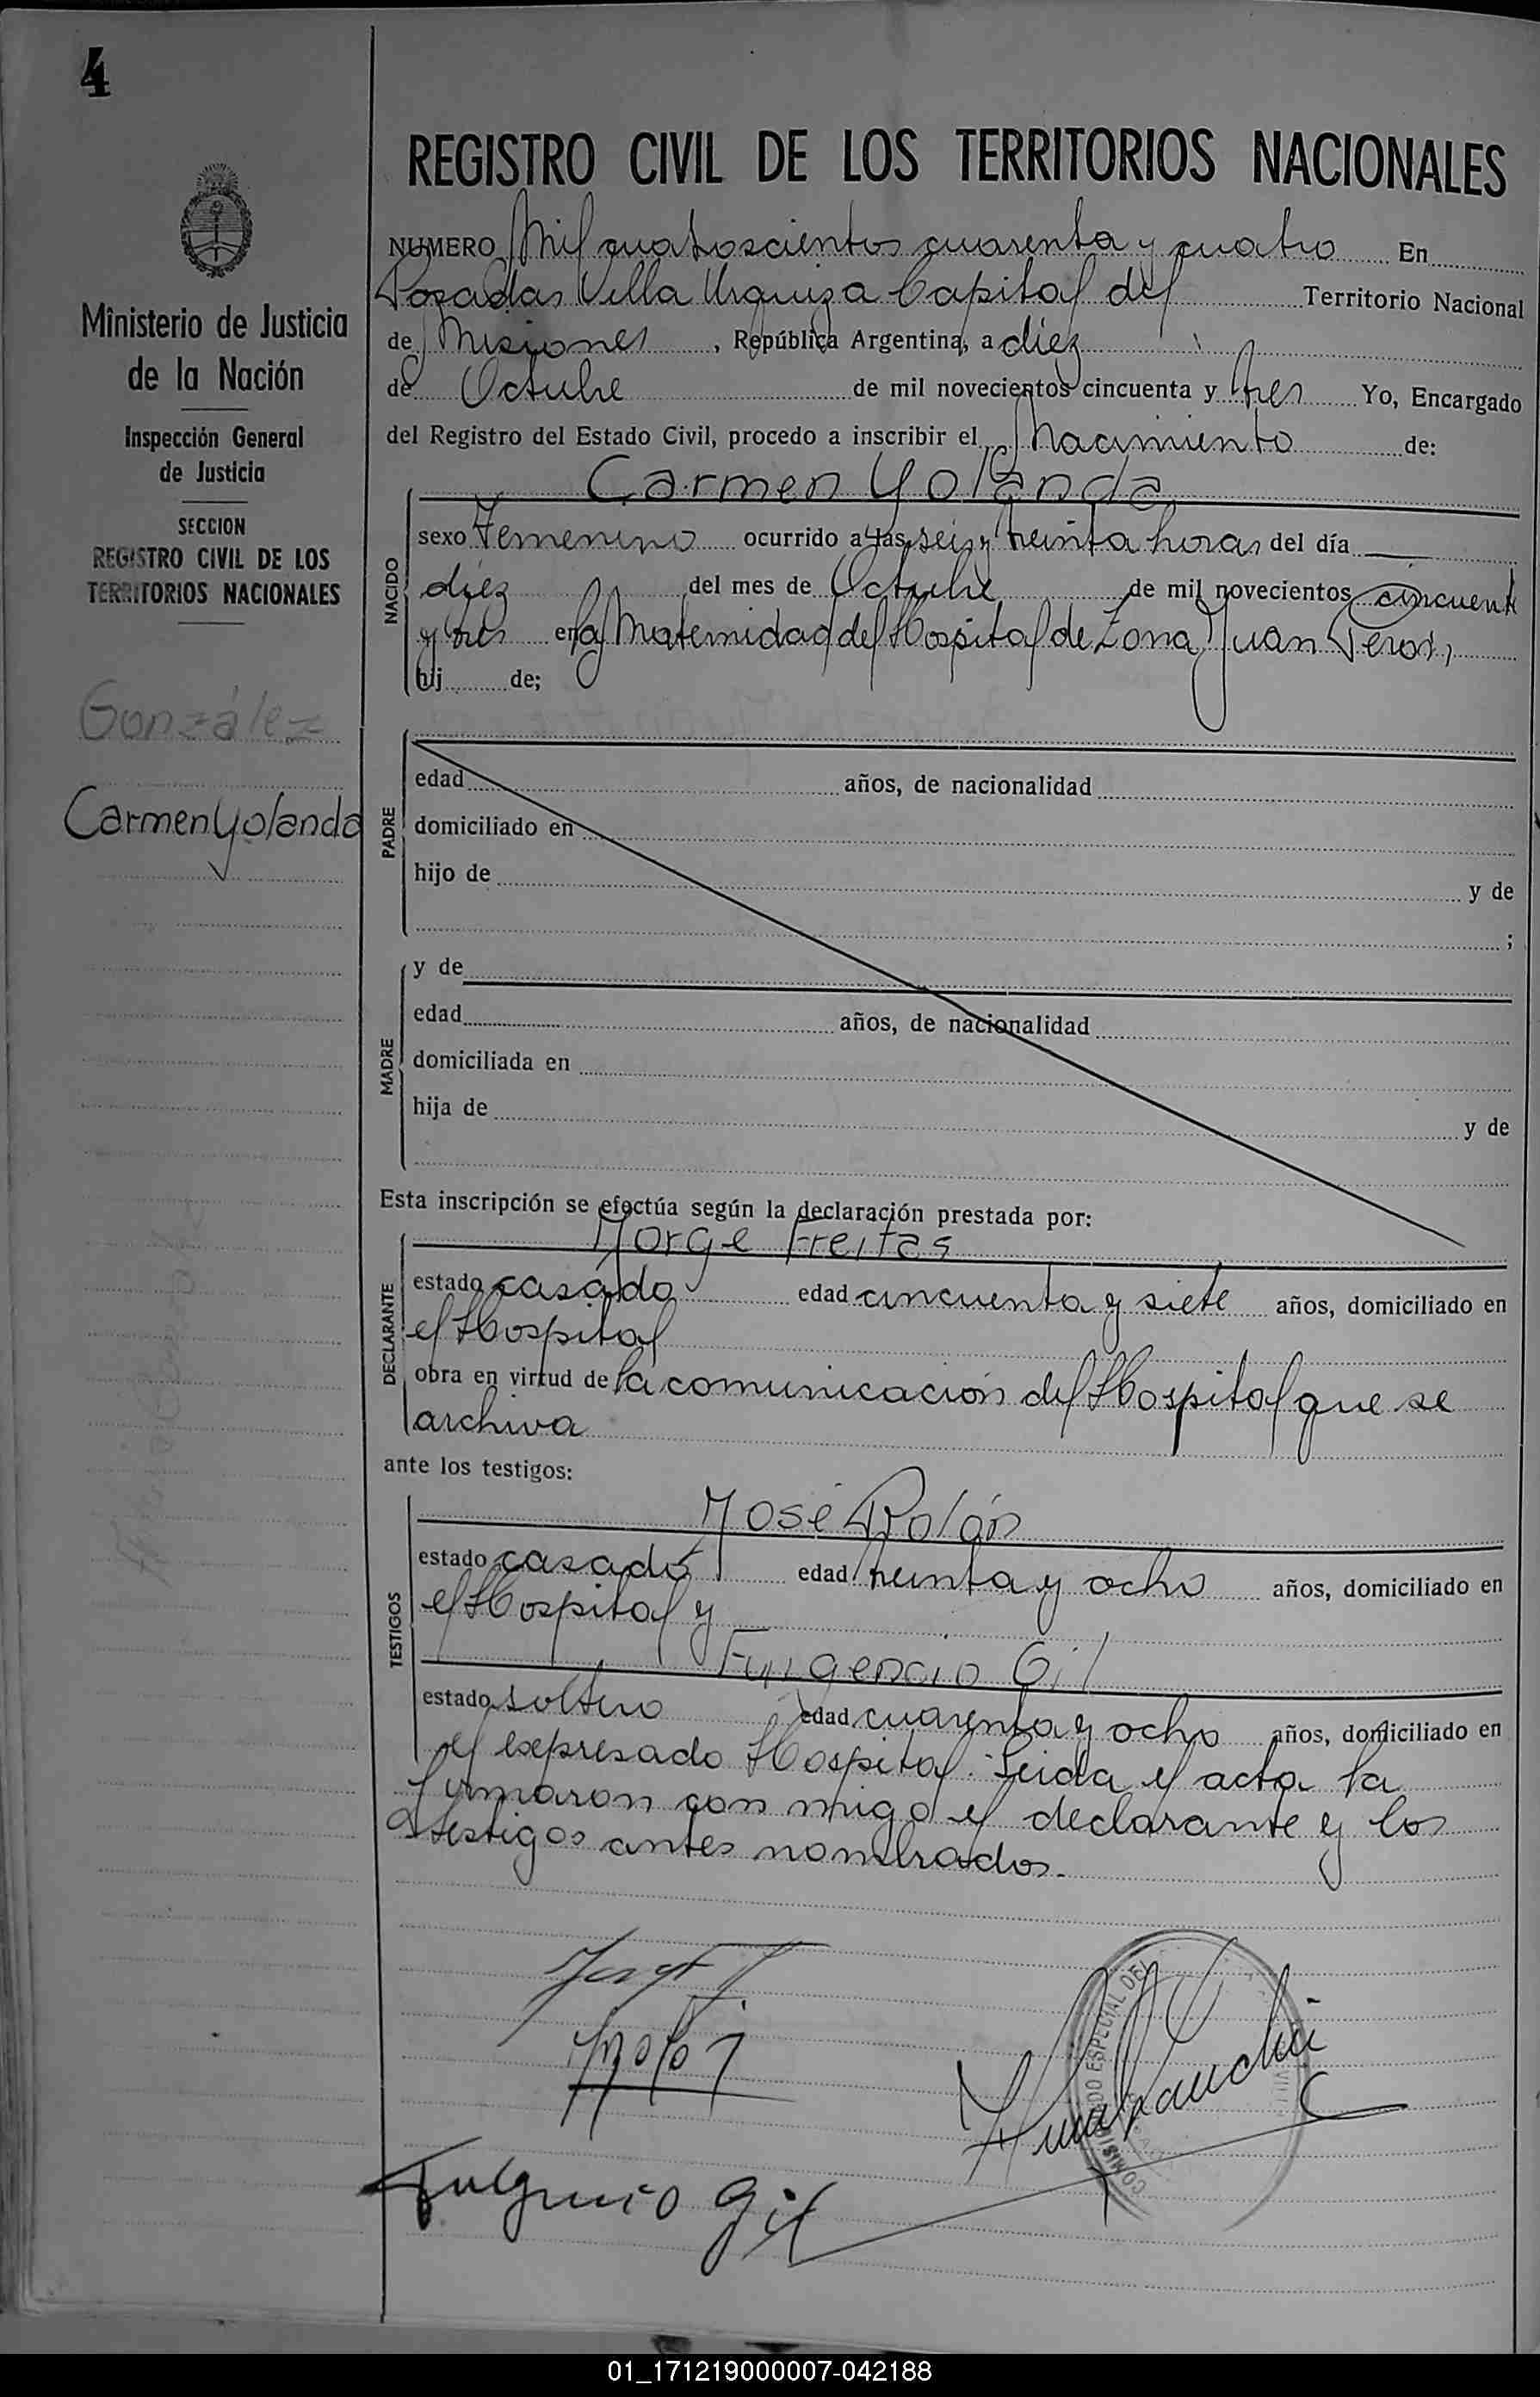 4
Ministerio de Justicia
de la Nación
Inspección General
de Justicia
SECCION
REGISTRO CIVIL DE LOS
TERRITORIOS NACIONALES
González
Carmen Yolanda
REGISTRO CIVIL DE LOS TERRITORIOS NACIONALES
NUMERO Mil cuatroscientos cuarenta y cuatro En
Posadas Villa Urquiza Capital del Territorio Nacional
de Misiones, República Argentina, a diez
de Octubre de mil novecientos cincuenta y tres Yo, Encargado
del Registro del Estado Civil, procedo a inscribir el Nacimiento de:
Carmen Yolanda
NACIDO
sexo Femenino ocurrido a las seis y treinta horas del día
diez del mes de Octubre de mil novecientos cincuenta
y tres en la Maternidad del Hospital de Zona Juan Peron,
hij de;
PADRE
edad años, de nacionalidad
domiciliado en
hijo de y de
;
MADRE
y de
edad años, de nacionalidad
domiciliada en
hija de y de
Esta inscripción se efectúa según la declaración prestada por:
Jorge Freitas
DECLARANTE
estado casado edad cincuenta y siete años, domiciliado en
el Hospital
obra en virtud de la comunicación del Hospital que se
archiva
ante los testigos:
José Rolón
TESTIGOS
estado casado edad treinta y ocho años, domiciliado en
el Hospital y
Fulgencio Gil
estado soltero edad cuarenta y ocho años, domiciliado en
el expresado Hospital. Leida el acta la
firmaron con migo el declarante y los
testigos antes nombrados.
Fulgencio Gil
01_171219000007-042188